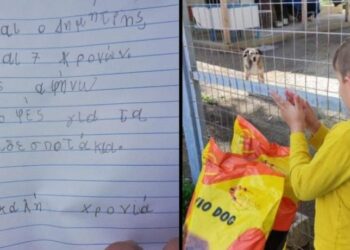 αι ο Δημητίης
αι 7 χρονών.
αφήνω
φές για τα
δεσποτάκια.
καλή χρονιά
VIO DOG